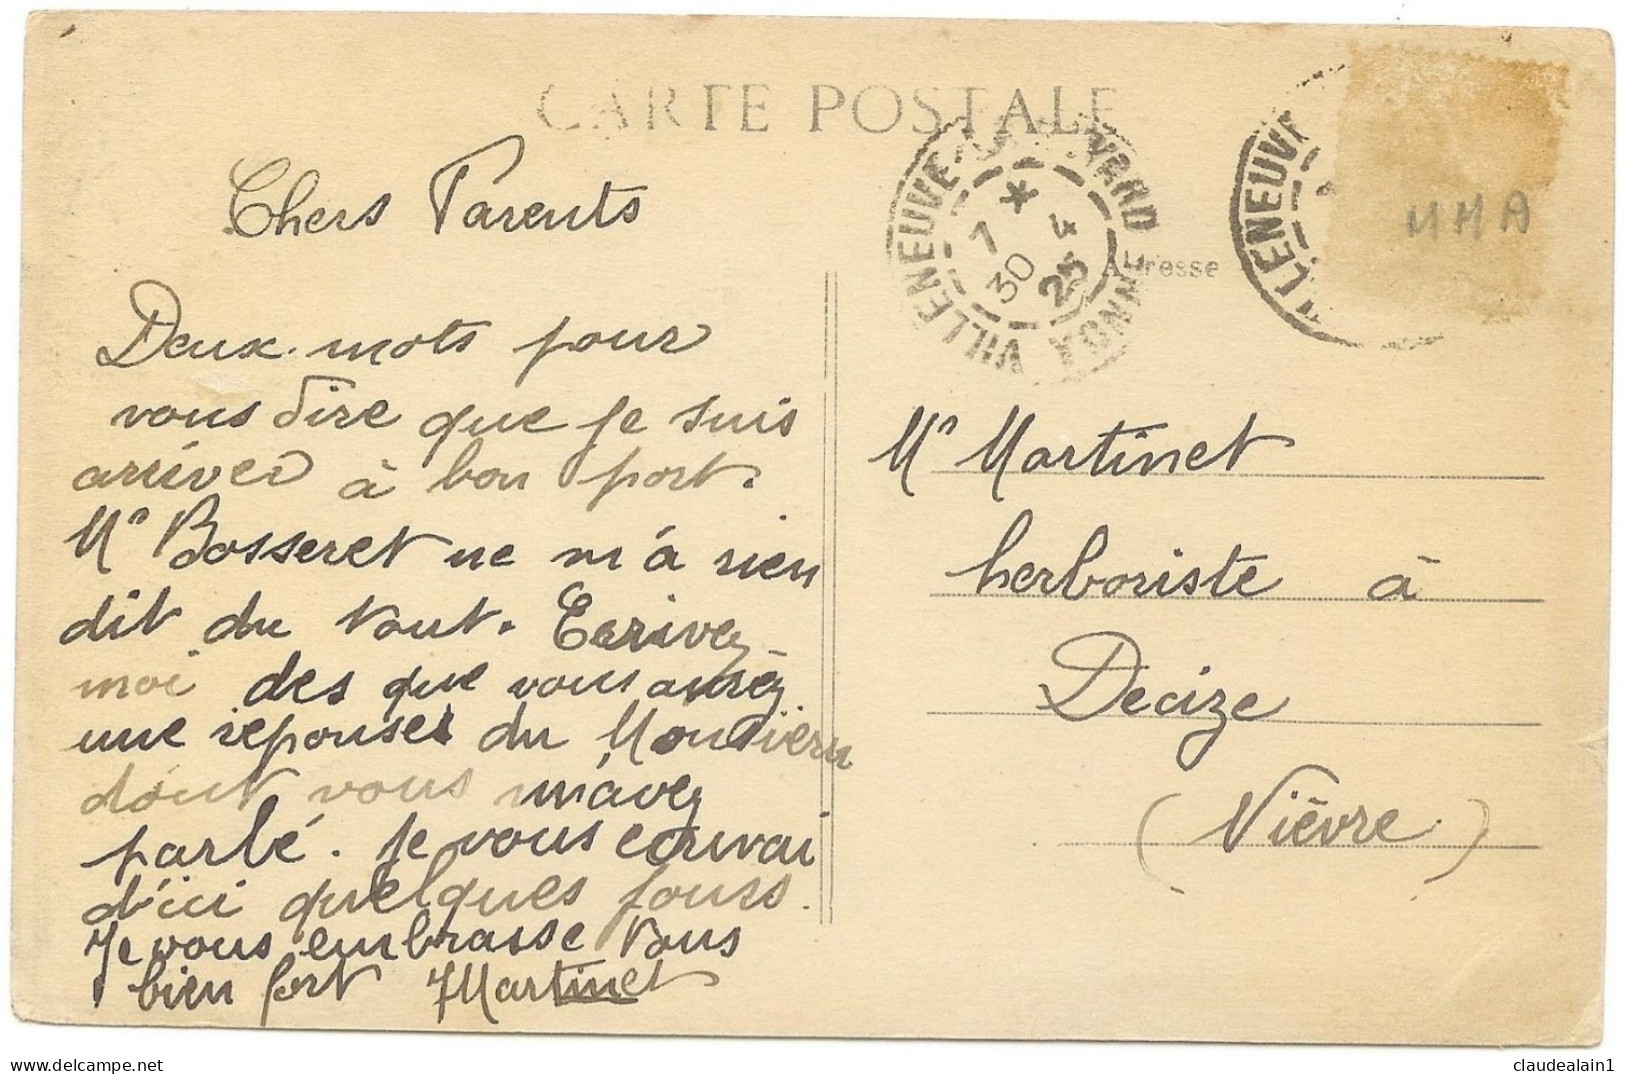 CARTE POSTALE
VILLENEUVE-LA-GUYARD YONNE
7 * 4
30 25
LENEUVE
MMA
Chers Parents
Deux mots pour
vous dire que je suis
arriver à bon port.
Mr Bosseret ne m'a rien
dit du tout. Ecrivez
moi des que vous aurez
une reponse du
dont vous m'avez
parlé. Je vous ecrivai
d'ici quelques jours.
Je vous embrasse tous
bien fort JMartinet
Adresse
Mr Martinet
herboriste à
Decize
(Nièvre)
delcampe.net
claudealain1